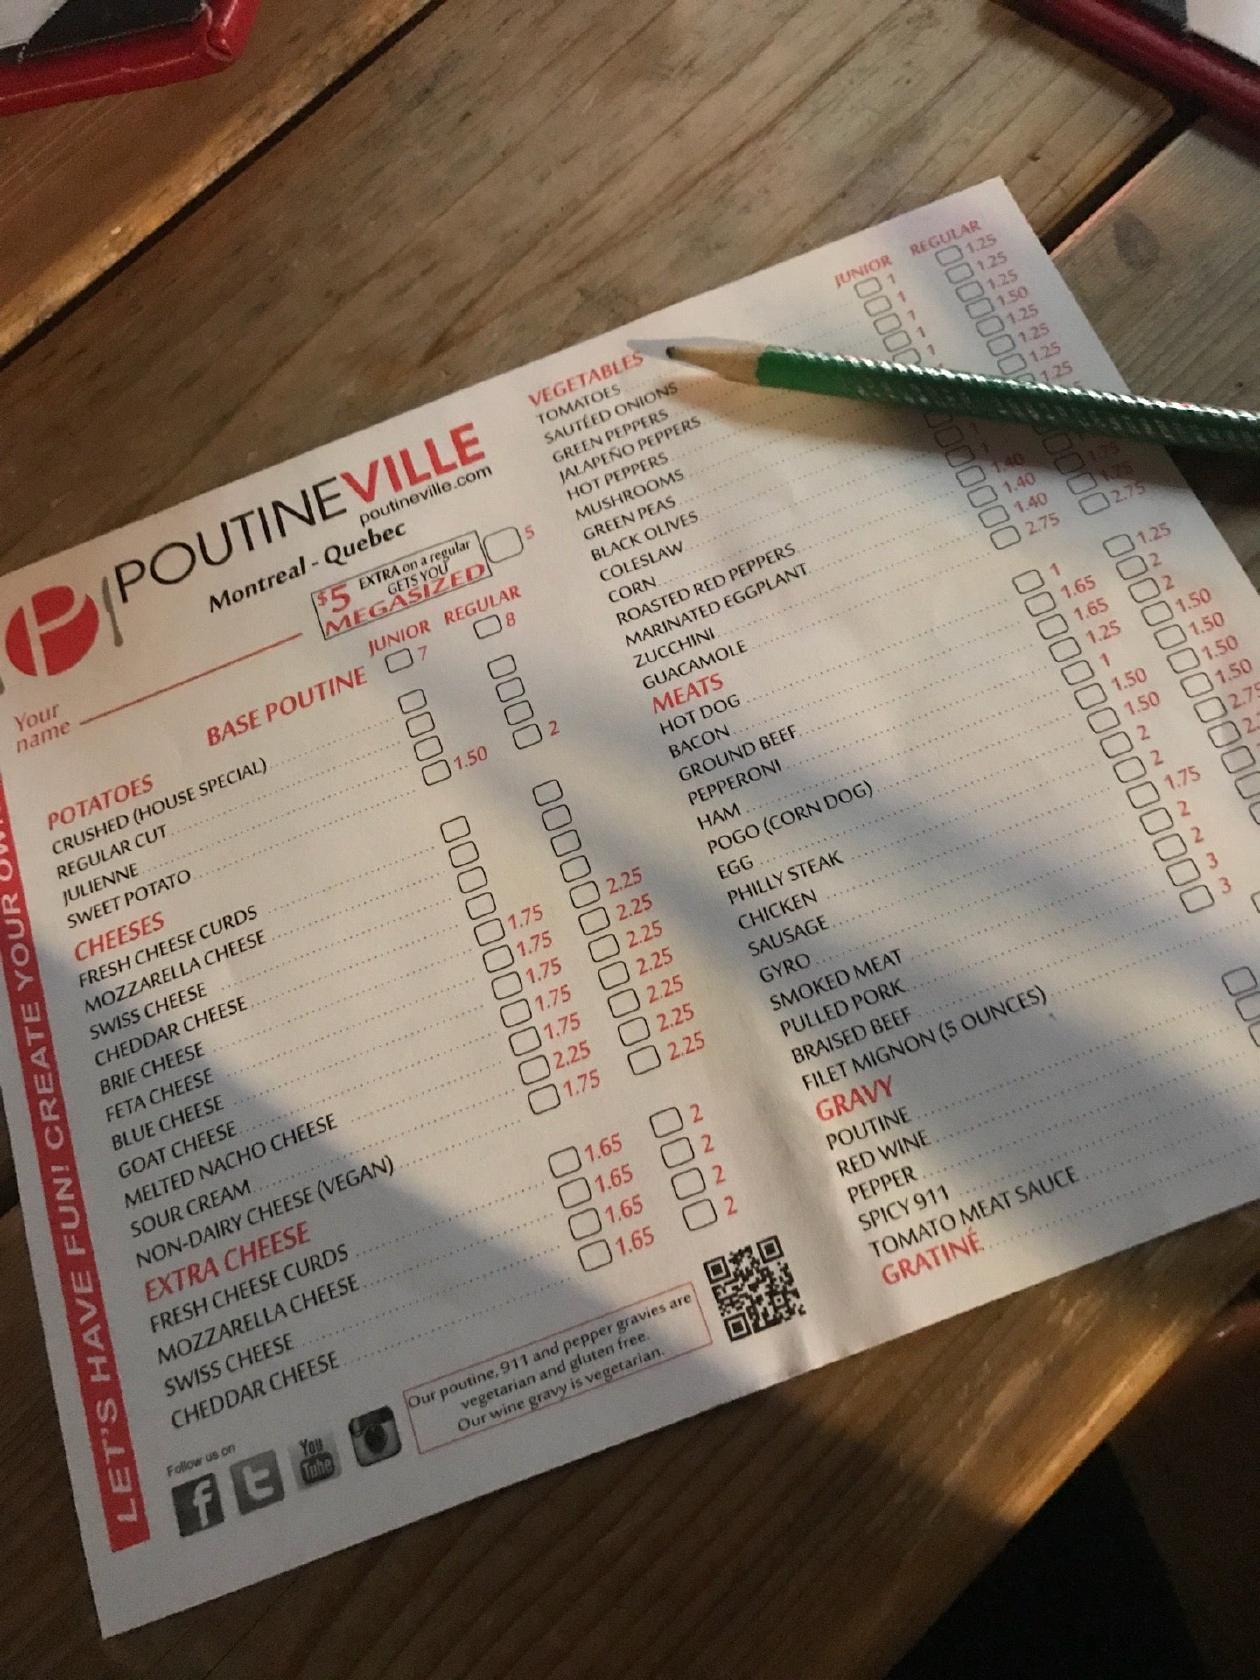 POUTINEVILLE
poutineville.com
Montreal - Quebec
$5 EXTRA on a regular
GETS YOU
MEGASIZED 5
Your
name
JUNIOR REGULAR
BASE POUTINE 7 8
POTATOES
CRUSHED (HOUSE SPECIAL)
REGULAR CUT
JULIENNE
SWEET POTATO 1.50 2
CHEESES
FRESH CHEESE CURDS
MOZZARELLA CHEESE
SWISS CHEESE
CHEDDAR CHEESE
BRIE CHEESE 1.75 2.25
FETA CHEESE 1.75 2.25
BLUE CHEESE 1.75 2.25
GOAT CHEESE 1.75 2.25
MELTED NACHO CHEESE 1.75 2.25
SOUR CREAM 2.25 2.25
NON-DAIRY CHEESE (VEGAN) 1.75 2.25
EXTRA CHEESE
FRESH CHEESE CURDS 1.65 2
MOZZARELLA CHEESE 1.65 2
SWISS CHEESE 1.65 2
CHEDDAR CHEESE 1.65 2
Follow us on
You
Tube
Our poutine, 911 and pepper gravies are
vegetarian and gluten free.
Our wine gravy is vegetarian.
LET'S HAVE FUN! CREATE YOUR OWN
JUNIOR REGULAR
VEGETABLES
TOMATOES 1 1.25
SAUTÉED ONIONS 1 1.25
GREEN PEPPERS 1 1.25
JALAPEÑO PEPPERS 1 1.50
HOT PEPPERS 1.25
MUSHROOMS 1.25
GREEN PEAS 1.25
BLACK OLIVES 1.25
COLESLAW 1
CORN 1
ROASTED RED PEPPERS 1.40
MARINATED EGGPLANT 1.40 1.75
ZUCCHINI 1.40 1.75
GUACAMOLE 2.75 2.75
MEATS
HOT DOG 1 1.25
BACON 1.65 2
GROUND BEEF 1.65 2
PEPPERONI 1.25 1.50
HAM 1 1.50
POGO (CORN DOG) 1.50 1.50
EGG 1.50 1.50
PHILLY STEAK 2 2.75
CHICKEN 2
SAUSAGE 1.75
GYRO 2
SMOKED MEAT 2
PULLED PORK 3
BRAISED BEEF 3
FILET MIGNON (5 OUNCES)
GRAVY
POUTINE
RED WINE
PEPPER
SPICY 911
TOMATO MEAT SAUCE
GRATINÉ